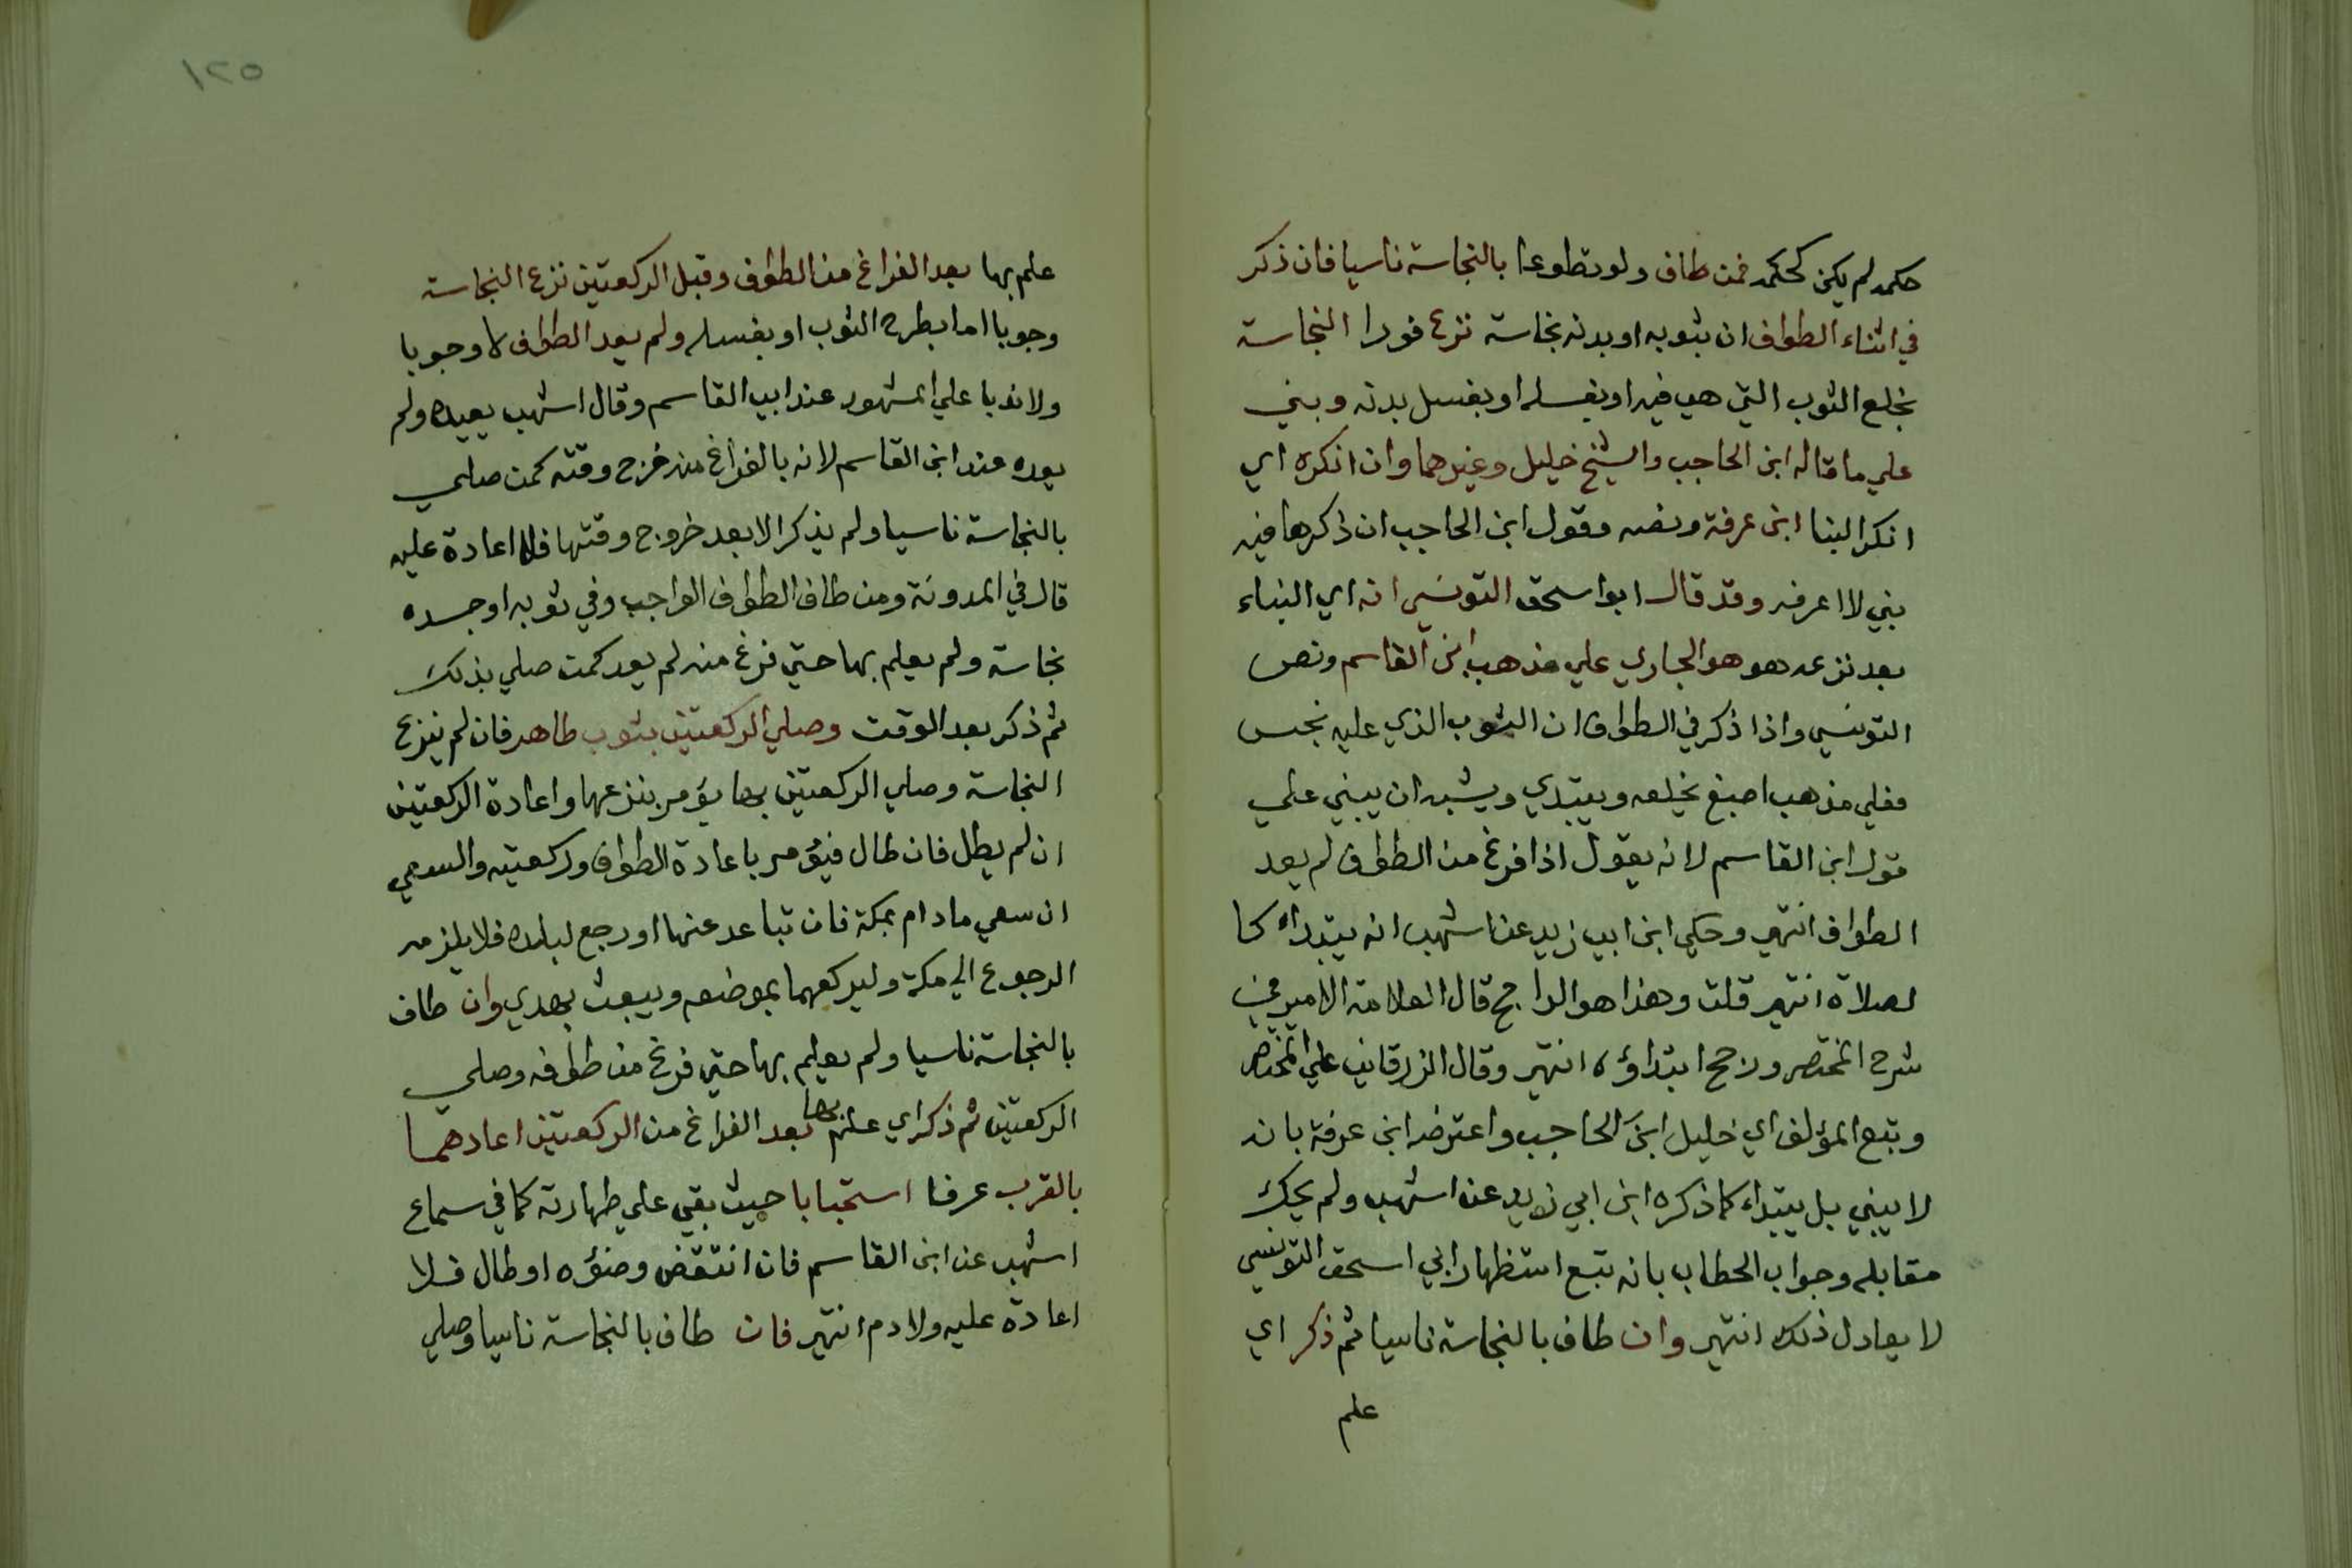 حكمه لم يكن كحكمه فمن طاف ولو تطوعا بالنجاسة ناسيا فان ذكر
في اثناء الطواف ان بثوبه او بدنه نجاسة نزع فورا النجاسة
بخلع الثوب التي هي فيه او بغسله او بغسل بدنه وبني
علي ما قاله ابن الحاجب والشيخ خليل وغيرهما وان انكره اي
انكر البنا ابن عرفة ونصه وقول ابن الحاجب ان ذكرها فيه
بني لا اعرفه وقد قال ابو اسحق التونسي انه اي البناء
بعد نزعه هو هو الجاري علي مذهب ابن القاسم ونص
التونسي واذا ذكر في الطواف ان الثوب الذي عليه نجس
فعلي مذهب اصبغ يخلعه ويبتدي ويشبه ان يبني علي
قول ابن القاسم لانه يقول اذا فرغ من الطواف لم يعد
الطواف انتهي وحكي ابن ابي زيد عن اشهب انه يبتداء كا
لصلاة انتهي قلت وهذا هو الراجح قال العلامة الامير في
شرح المختصر ورجح ابتداؤه انتهي وقال الزرقاني علي المختصر
وتبع المؤلف اي خليل ابن الحاجب واعترضه ابن عرفة بانه
لا يبني بل يبتداء كما ذكره ابن ابي زيد عن اشهب ولم يحك
مقابله وجواب الحطاب بانه تبع استظهار ابي اسحق التونسي
لا يعادل ذلك انتهي وان طاف بالنجاسة ناسيا ثم ذكر اي
علم
١٢٥
علم بها بعد الفراغ من الطواف وقبل الركعتين نزع النجاسة
وجوبا اما بطرح الثوب او بغسله ولم يعد الطواف لا وجوبا
ولا ندبا علي المشهور عند ابي القاسم وقال اشهب يعيده ولم
يعده عند ابن القاسم لانه بالفراغ منه خرج وقته كمن صلي
بالنجاسة ناسيا ولم يذكر الا بعد خروج وقتها فلا اعادة عليه
قال في المدونة ومن طاف الطواف الواجب وفي ثوبه او جسده
نجاسة ولم يعلم بها حتي فرغ منه لم يعد كمن صلي بذلك
ثم ذكر بعد الوقت وصلي الركعتين بثوب طاهر فان لم ينزع
النجاسة وصلي الركعتين بها يؤمر بنزعها واعادة الركعتين
ان لم يطل فان طال فيؤمر باعادة الطواف وركعتيه والسعي
ان سعي مادام بمكة فان تباعد عنها او رجع لبلده فلا يلزمه
الرجوع الي مكة وليركعهما بموضعه ويبعث بهدي وان طاف
بالنجاسة ناسيا ولم يعلم بها حتي فرغ من طوافه وصلي
الركعتين ثم ذكر اي علم بها بعد الفراغ من الركعتين اعادهما
بالقرب عرفا استحبابا حيث بقي علي طهارته كما في سماع
اشهب عن ابن القاسم فان انتقض وضؤه او طال فلا
اعادة عليه ولا دم انتهي فان طاف بالنجاسة ناسيا وصلي